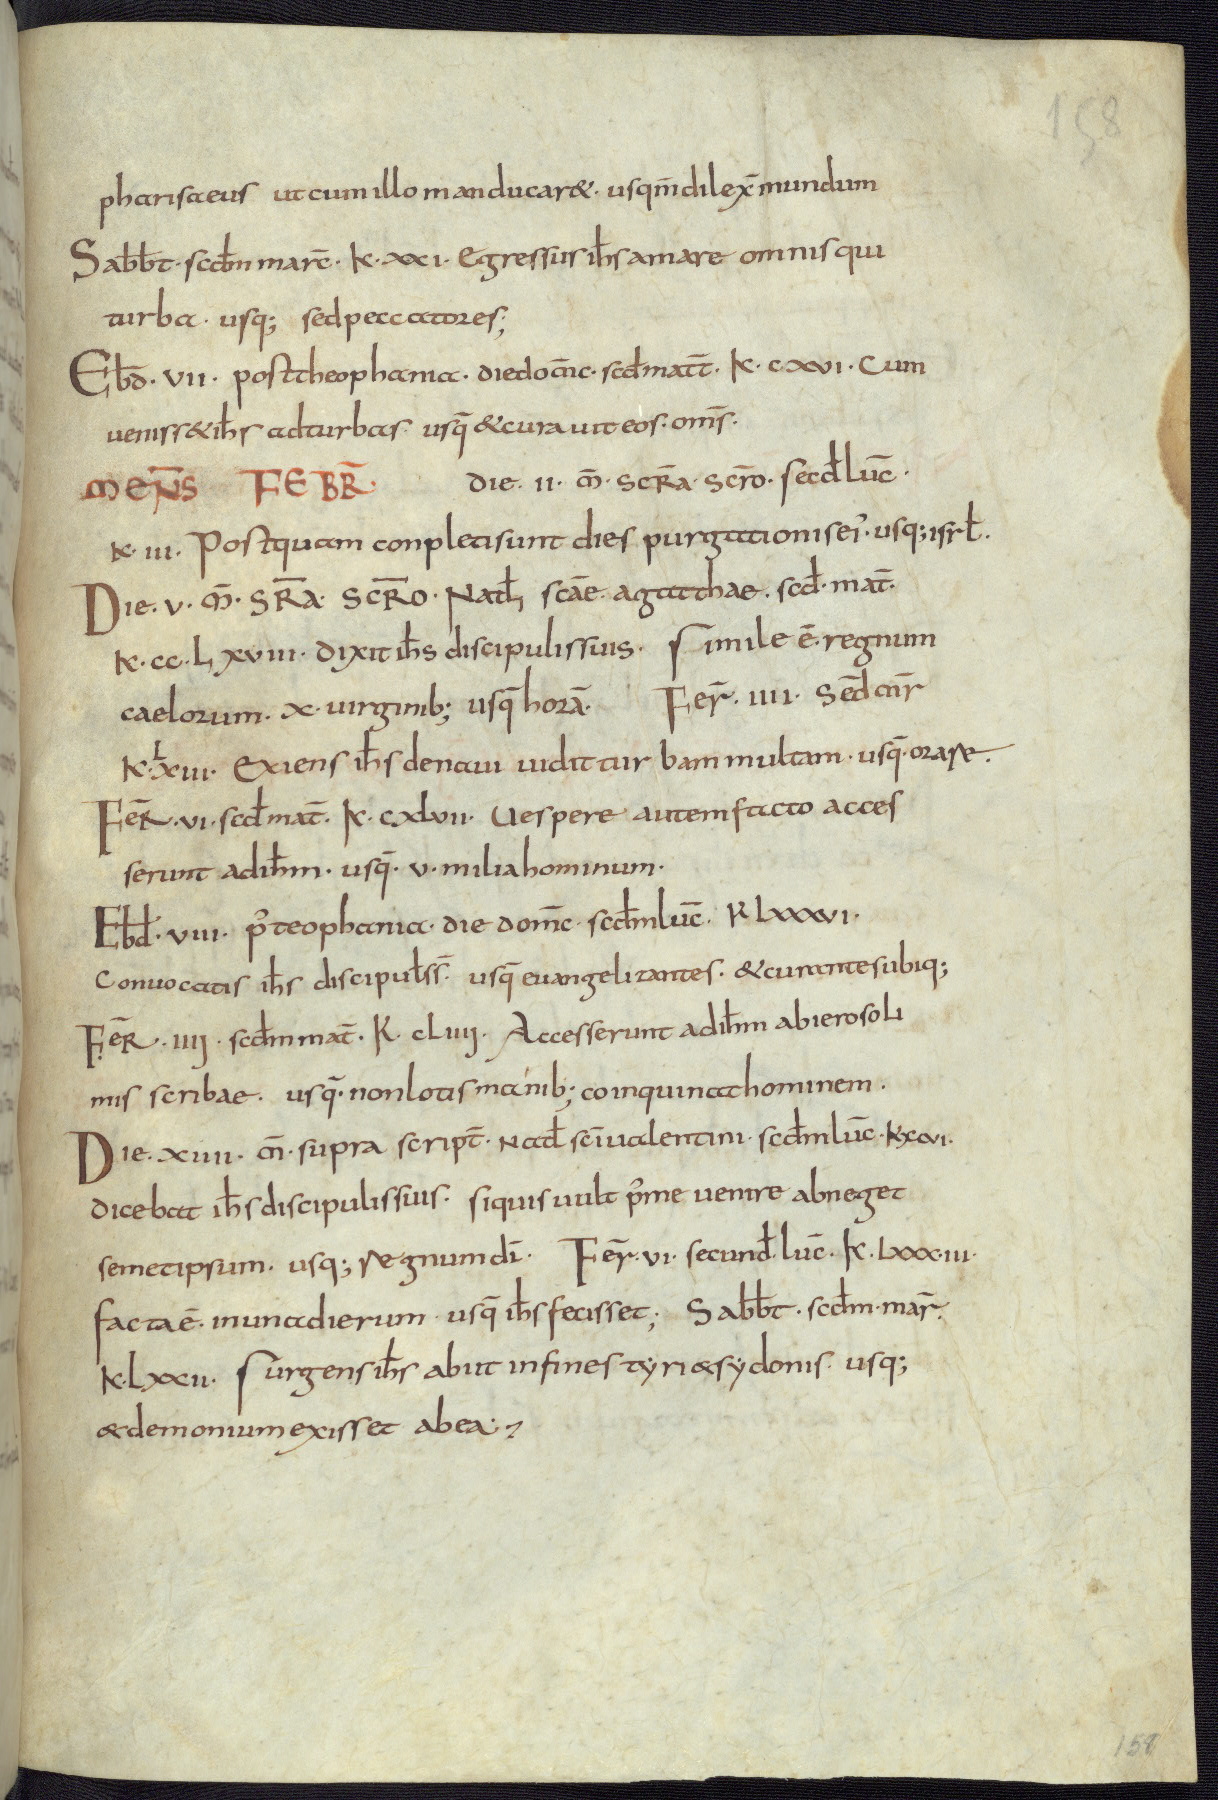 158
pharisaeus ut cum illo manducar&. usq m̄ dilex̄ mundum
Sabb̄t. scd̄m marc̄. k. xxi. Egressus ih̄s a mare omnisqui
turba. usq; sed peccatores;
Ebd̄. vii. post theophania. die dom̄c. scd̄ matt̄. k. cxvi. Cum
veniss& ih̄s ad turbas. usq̄ & curavit eos. om̄s.
MEN̄S FEBR̄. die. ii. m̄. scr̄a scr̄o. secd̄ luc̄.
k. iii. Postquam conpleti sunt dies purgationis ei'. usq; isrł.
Die. v. m̄. SR̄A. SCR̄O. Natł scāe. agathae. scd̄. mat̄.
k. cc. Lxviii. dixit ih̄s discipulis suis. Simile ē. regnum
caelorum. x. virginib; usq̄ horā. Fer̄. iiii. sēd mr̄
k. Lxiii. Exiens ih̄s de navi vidit turbam multam. usq̄. orare.
Fer̄. vi. scd̄ mat̄. k. cxlvii. Vespere autem facto acces
serunt ad ih̄m. usq̄. v. milia hominum.
Ebd̄. viii. p' teophania. die dom̄c. scd̄m luc̄. k Lxxxvi.
Convocatis ih̄s discipulis s̄. usq̄ evangelizantes. & curantes ubiq;
Fer̄. iiij. scd̄m mat̄. k. cLiiij. Accesserunt ad ih̄m ab ierosoli
mis scribae. usq̄. non lotis manib; coinquinat hominem.
Die. xiiii. m̄. supra script̄. Nad̄ sc̄i valentini. scd̄m luc̄. k xcvi.
dicebat ih̄s discipulis suis. siquis vult p' me venire abneget
semetipsum. usq; regnum dī. Fer̄. vi. secund̄. luc̄. k. Lxxx.iii.
facta ē. in una dierum. usq̄ ih̄s fecisset; Sabb̄t. scd̄m. mar̄.
k. Lxxii. Surgens ih̄s abiit in fines tyri & sydonis. usq;
& demonium exisset ab ea.
158